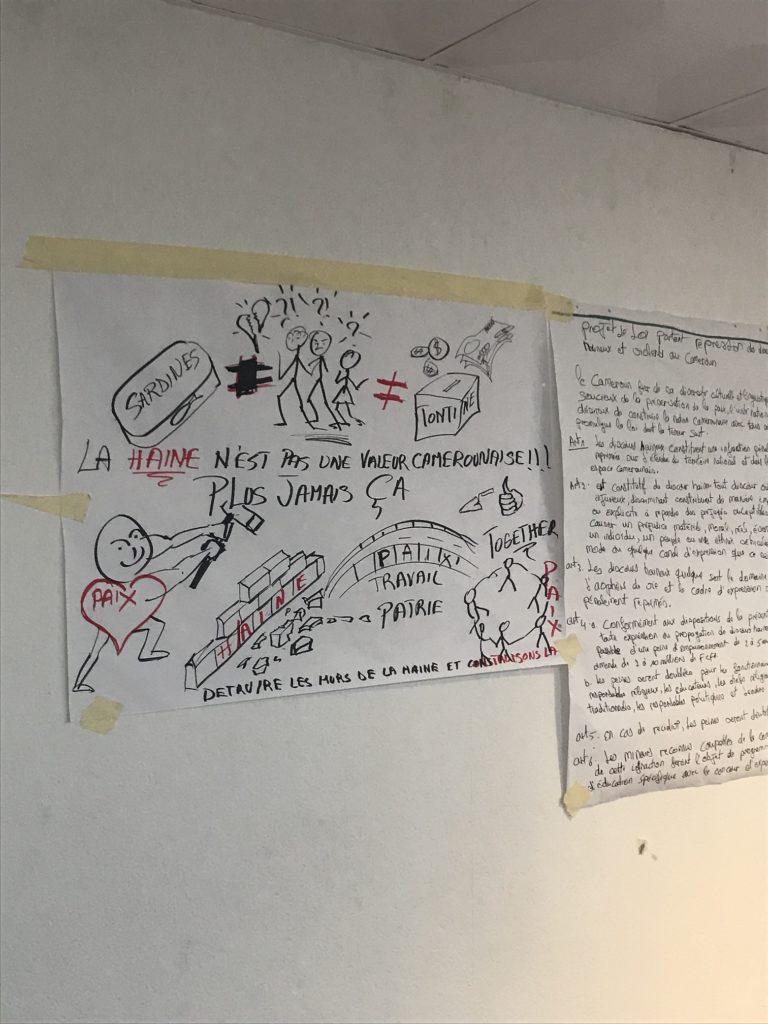 ?! ?! ?
SARDINES
≠
≠
$
TONTINE
LA HAINE N'EST PAS UNE VALEUR CAMEROUNAISE!!!
PLUS JAMAIS ÇA
PAIX
HAINE
PAIX
TRAVAIL
PATRIE
TOGETHER
DETRUIRE LES MURS DE LA HAINE ET CONSTRUISONS LA
PAIX
projet de Loi portant repression des
haineux et violents au Cameroun
le Cameroun fier de sa diversité culturelle et
soucieux de la préservation de la paix, l'unité
désireux de construire la nation camerounaise avec tous
promulgue la loi dont la teneur suit.
Art 1. Les discours haineux constituent une infraction
reprimée sur l'étendue du territoire national et dans
espace camerounais.
Art 2: est constitutif du discours haineux tout discours
injurieux, discriminant contribuant de manière
ou explicite à repandre des préjugés susceptibles
causer un prejudice matériel, moral,
un individu, un peuple ou une ethnie
mode ou quelque canal d'expression que ce
art 3. Les discours haineux quelque soit le domaine
et le cadre d'expression
pénalement reprimés.
art 4. a. Conformément aux dispositions de la présente
toute expression ou propagation de discours haineux
passible d'une peine d'emprisonnement de 2 à 5
amende de 2 à 10 millions de FCFA
b. les peines seront doublées pour les fonctionnaires
responsables religieux, les educateurs, les chefs
traditionnels, les responsables politiques et
art 5. En cas de recidive, les peines seront
art 6. Les mineurs reconnus coupables de la
de cette infraction feront l'objet de
d'éducation spécifique avec le concours